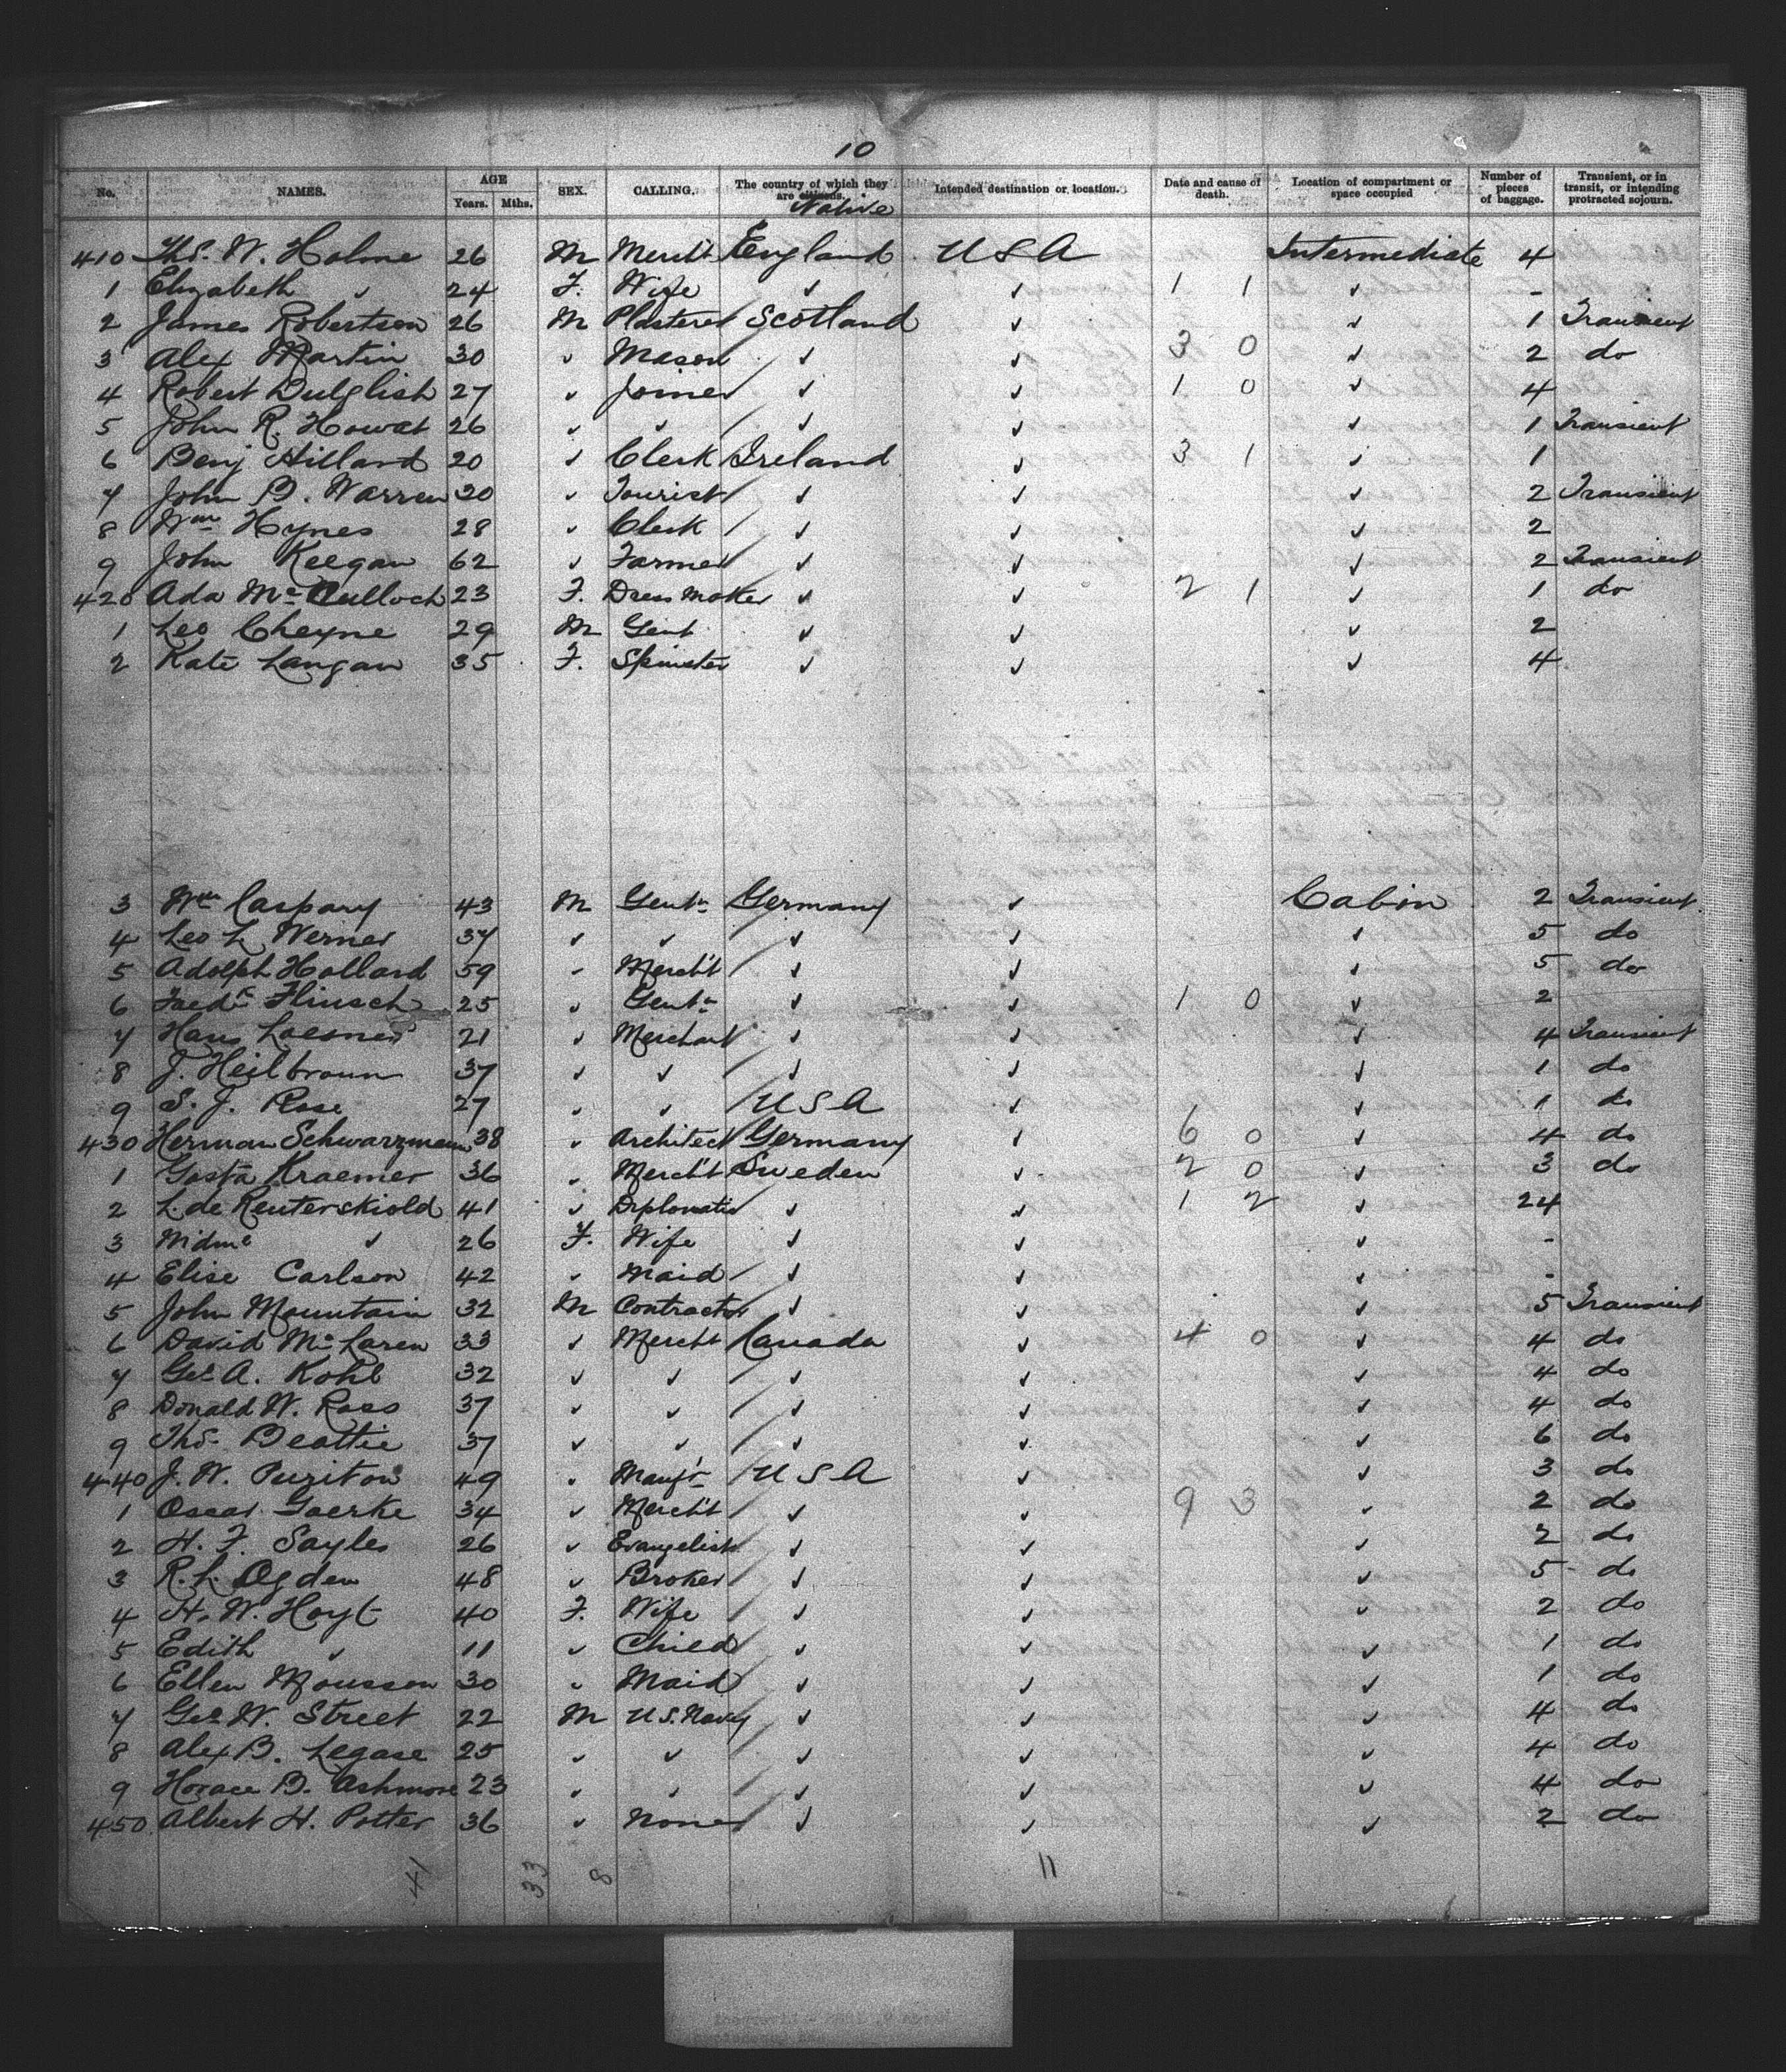 10
No. NAMES. AGE Years. Mths. SEX. CALLING. The country of which they are citizens. Native Intended destination or location. Date and cause of death. Location of compartment or space occupied Number of pieces of baggage. Transient, or in transit, or intending protracted sojourn.
410 Thos. W. Holme 26 M Mercht England USA Intermediate 4
1 Elizabeth ✓ 24 F. Wife ✓ ✓ 1 1 ✓ -
2 James Robertson 26 M Plasterer Scotland ✓ ✓ 1 Transient
3 Alex Martin 30 ✓ Mason ✓ ✓ 3 0 ✓ 2 do
4 Robert Dulglish 27 ✓ Joiner ✓ ✓ 1 0 ✓ 4
5 John R. Howat 26 ✓ ✓ ✓ ✓ ✓ 1 Transient
6 Benj Hilland 20 ✓ Clerk Ireland ✓ 3 1 ✓ 1
7 John B. Warren 30 ✓ Tourist ✓ ✓ ✓ 2 Transient
8 Wm Hynes 28 ✓ Clerk ✓ ✓ ✓ 2
9 John Keegan 62 ✓ Farmer ✓ ✓ ✓ 2 Transient
420 Ada McCulloch 23 F. Dress maker ✓ ✓ 2 1 ✓ 1 do
1 Leo Cheyne 29 M Gent ✓ ✓ ✓ 2
2 Kate Langan 35 F. Spinster ✓ ✓ ✓ 4
3 Wm Caspary 43 M Gentn Germany ✓ Cabin 2 Transient
4 Leo L. Werner 37 ✓ ✓ ✓ ✓ ✓ 5 do
5 Adolph Hollard 59 - Mercht ✓ ✓ ✓ 5 do
6 Fredc Hinsch 25 ✓ Gentn ✓ ✓ 1 0 ✓ 2
7 Hans Loesner 21 ✓ Merchant ✓ ✓ ✓ 4 Transient
8 J. Heilbroun 37 ✓ ✓ ✓ ✓ ✓ 1 do
9 S. J. Rose 27 ✓ ✓ USA ✓ ✓ 1 do
430 Herman Schwarzmann 38 ✓ Architect Germany ✓ 6 0 ✓ 4 do
1 Gosta Kraemer 36 ✓ Mercht Sweden ✓ 2 0 ✓ 3 do
2 L. de Reuterskiold 41 ✓ Diplomatic ✓ ✓ 1 2 ✓ 24
3 Mdme ✓ 26 F. Wife ✓ ✓ ✓ -
4 Elise Carlson 42 ✓ Maid ✓ ✓ ✓ -
5 John Mountain 32 M Contractor ✓ ✓ ✓ 5 Transient
6 David McLaren 33 ✓ Mercht Canada ✓ 4 0 ✓ 4 do
7 Geo A. Kohl 32 ✓ ✓ ✓ ✓ ✓ 4 do
8 Donald W. Ross 37 ✓ ✓ ✓ ✓ ✓ 4 do
9 Thos. Beattie 37 ✓ ✓ ✓ ✓ ✓ 6 do
440 J. W. Puriton 49 ✓ Manfr USA ✓ ✓ 3 do
1 Oscar Goerke 34 ✓ Mercht ✓ ✓ 9 3 ✓ 2 do
2 H. F. Sayles 26 ✓ Evangelist ✓ ✓ ✓ 2 do
3 R. L. Ogden 48 ✓ Broker ✓ ✓ ✓ 5 do
4 H. W. Hoyt 40 F. Wife ✓ ✓ ✓ 2 do
5 Edith ✓ 11 ✓ Child ✓ ✓ ✓ 1 do
6 Ellen Mousson 30 ✓ Maid ✓ ✓ ✓ 1 do
7 Geo W. Street 22 M U.S. Navy ✓ ✓ ✓ 4 do
8 Alex B. Legare 25 ✓ ✓ ✓ ✓ ✓ 4 do
9 Horace B. Ashmore 23 ✓ ✓ ✓ ✓ ✓ 4 do
450 Albert H. Potter 36 ✓ None ✓ ✓ ✓ 2 do
41 33 8 11